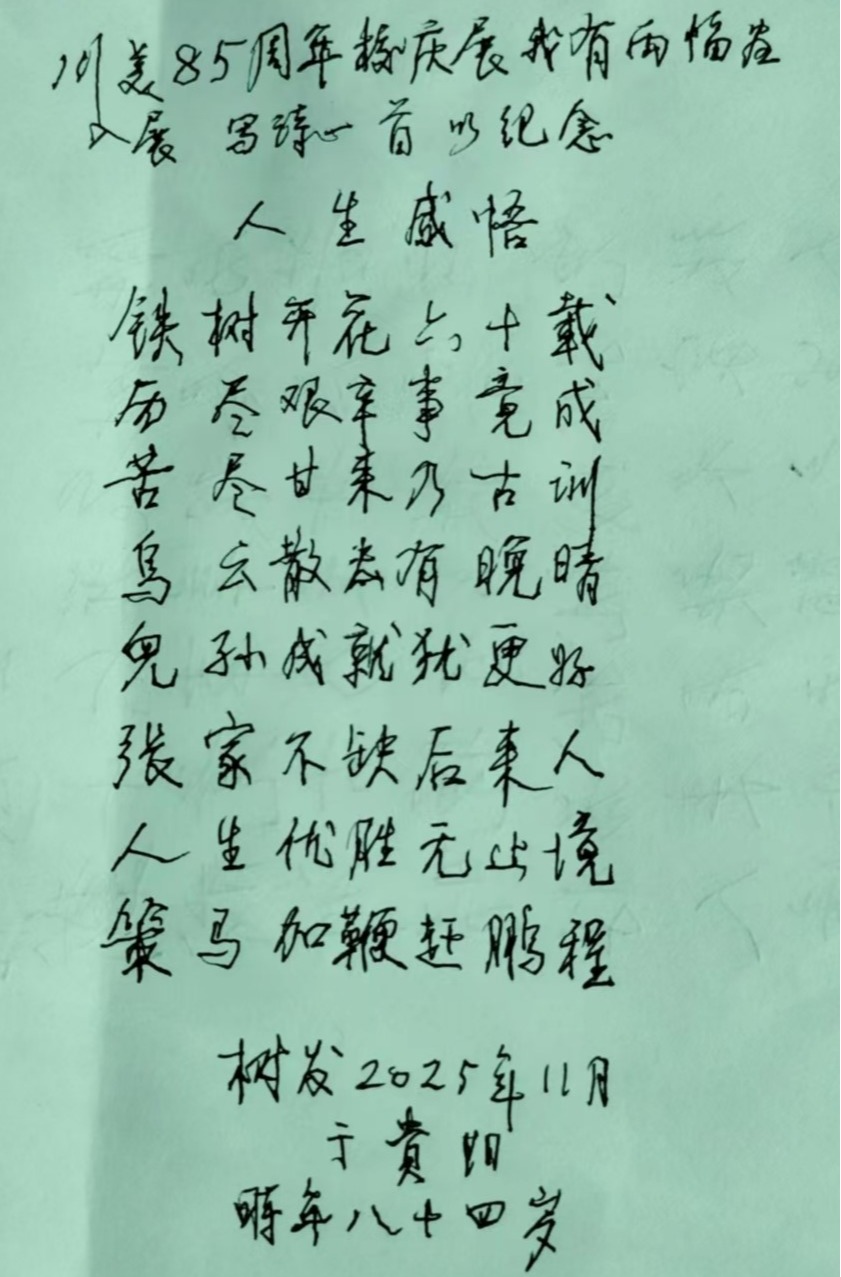 川美85周年校庆展我有两幅画
入展 写诗一首以纪念
人生感悟
铁树开花六十载
历尽艰辛事竟成
苦尽甘来乃古训
乌云散去有晚晴
儿孙成就犹更好
张家不缺后来人
人生优胜无止境
策马加鞭赶鹏程
树发2025年11月
于貴阳
时年八十四岁